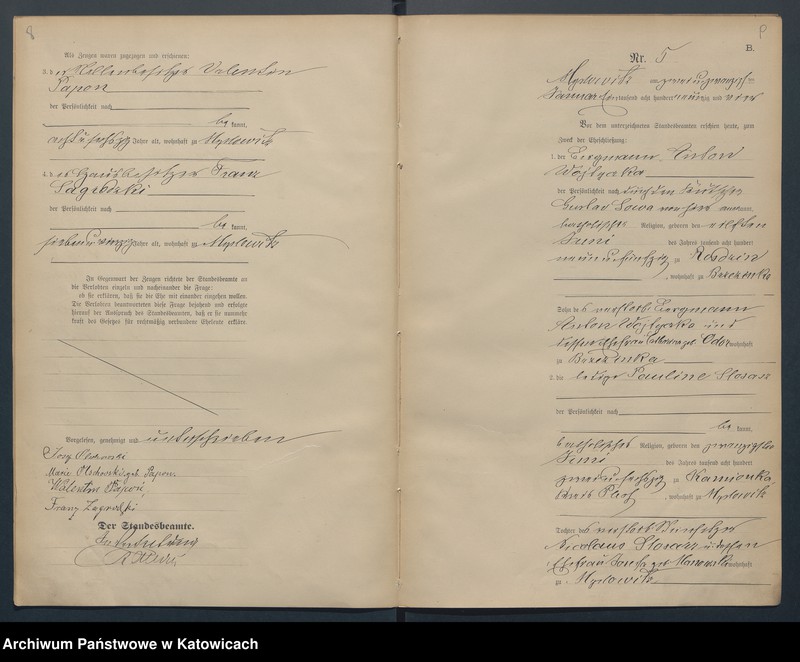 8
Als Zeugen waren zugezogen und erschienen:
3. der Stellenbesitzer Valentin
Papon
der Persönlichkeit nach
be kannt,
achtundsechszig Jahre alt, wohnhaft zu Myslowitz
4. der Hausbesitzer Franz
Zagrodzki
der Persönlichkeit nach
be kannt,
Jahre alt, wohnhaft zu Myslowitz
In Gegenwart der Zeugen richtete der Standesbeamte an
die Verlobten einzeln und nacheinander die Frage:
ob sie erklären, daß sie die Ehe mit einander eingehen wollen.
Die Verlobten beantworteten diese Frage bejahend und erfolgte
hierauf der Ausspruch des Standesbeamten, daß er sie nunmehr
kraft des Gesetzes für rechtmäßig verbundene Eheleute erkläre.
Vorgelesen, genehmigt und unterschrieben
Marie geb. Papon
Walentin Papon
Franz
Der Standesbeamte.
In Vertretung
B.
Nr. 5
Myslowitz am zweiundzwanzigsten
Januar tausend acht hundert neunzig und vier
Vor dem unterzeichneten Standesbeamten erschien heute, zum
Zweck der Eheschließung:
1. der Bergmann Anton
der Persönlichkeit nach durch den
Gustav Sowa von hier anerkannt,
katholischer Religion, geboren den elften
Juni des Jahres tausend acht hundert
neunundfünfzig zu Rosdzin
, wohnhaft zu Brzezinka
Sohn des verstorb. Bergmann
Anton und
dessen Ehefrau geb. wohnhaft
zu Brzezinka
2. die ledige Pauline
der Persönlichkeit nach
be kannt,
katholischer Religion, geboren den zwanzigsten
Juni des Jahres tausend acht hundert
zu Kamionka
Kreis Pleß, wohnhaft zu Myslowitz
Tochter des verstorb.
Nicolaus und dessen
Ehefrau Josefa geb. wohnhaft
zu Myslowitz
Archiwum Państwowe w Katowicach